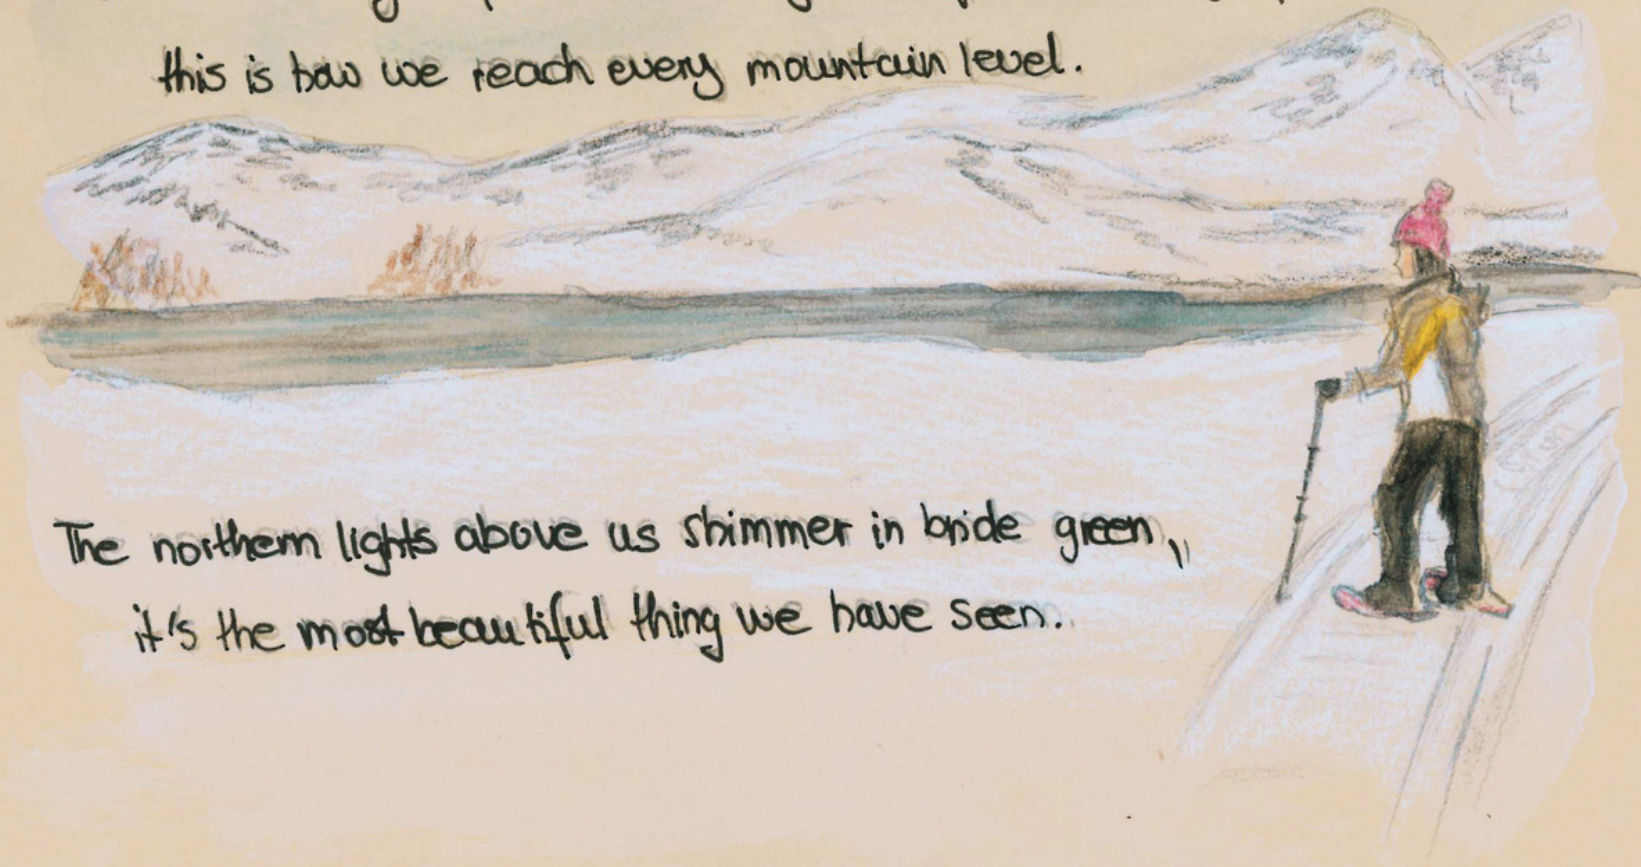 this is how we reach every mountain level.
The northern lights above us shimmer in bride green,
it's the most beautiful thing we have seen.